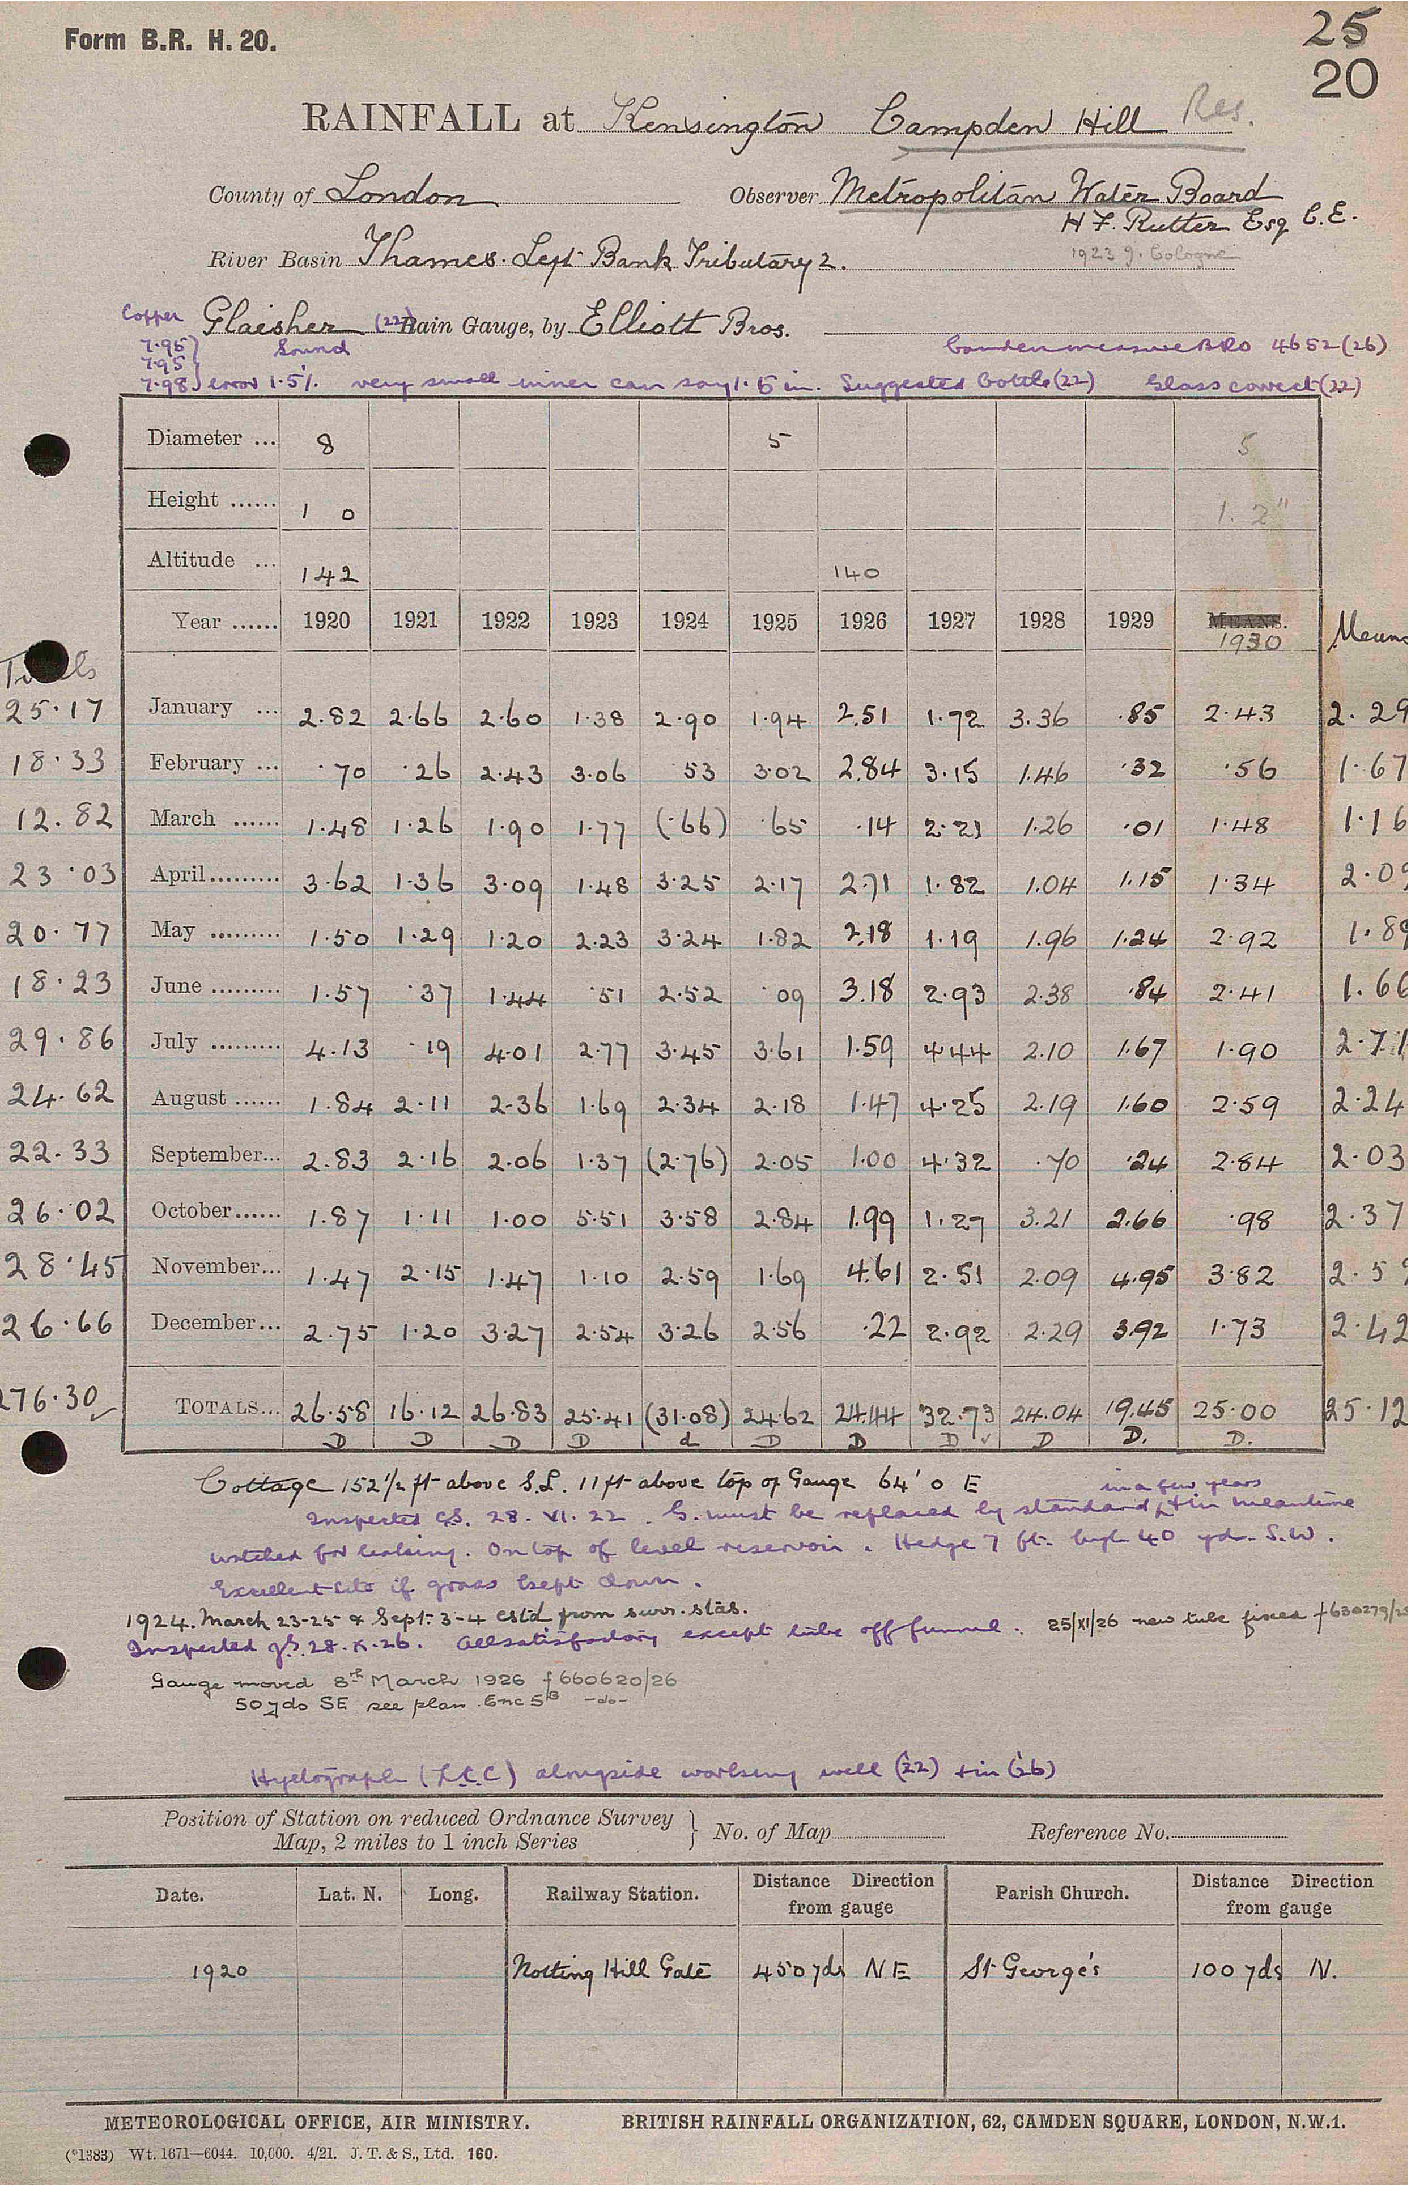 Form B.R. H. 20.
25
20
RAINFALL at Kensington Campden Hill Res.
County of London Observer Metropolitan Water Board
H F. Rutter Esq C.E.
River Basin Thames. Left Bank Tributary 2.
1923 J. Cologne
Copper Glaisher (22) Rain Gauge, by Elliott Bros.
7.95 Sound Camden measure BRO 4652 (26)
7.95
7.98 error 1.5% very small inner can say 1.5 in. Suggested bottle (22) Glass correct (22)
Diameter ... 8 5 5
Height ...... 1 0 1. 2"
Altitude ... 142 140
Year ...... 1920 1921 1922 1923 1924 1925 1926 1927 1928 1929 MEANS. 1930 Means
Totals
25.17 January ... 2.82 2.66 2.60 1.38 2.90 1.94 2.51 1.72 3.36 .85 2.43 2.29
18.33 February ... .70 .26 2.43 3.06 53 3.02 2.84 3.15 1.46 .32 .56 1.67
12.82 March ...... 1.48 1.26 1.90 1.77 (.66) .65 .14 2.21 1.26 .01 1.48 1.16
23.03 April......... 3.62 1.36 3.09 1.48 3.25 2.17 2.71 1.82 1.04 1.15 1.34 2.09
20.77 May ......... 1.50 1.29 1.20 2.23 3.24 1.82 2.18 1.19 1.96 1.24 2.92 1.89
18.23 June ......... 1.57 .37 1.44 .51 2.52 09 3.18 2.93 2.38 .84 2.41 1.66
29.86 July ......... 4.13 .19 4.01 2.77 3.45 3.61 1.59 4.44 2.10 1.67 1.90 2.71
24.62 August ...... 1.84 2.11 2.36 1.69 2.34 2.18 1.47 4.25 2.19 1.60 2.59 2.24
22.33 September... 2.83 2.16 2.06 1.37 (2.76) 2.05 1.00 4.32 .70 .24 2.84 2.03
26.02 October...... 1.87 1.11 1.00 5.51 3.58 2.84 1.99 1.27 3.21 2.66 .98 2.37
28.45 November... 1.47 2.15 1.47 1.10 2.59 1.69 4.61 2.51 2.09 4.95 3.82 2.59
26.66 December... 2.75 1.20 3.27 2.54 3.26 2.56 .22 2.92 2.29 3.92 1.73 2.42
276.30 TOTALS... 26.58 16.12 26.83 25.41 (31.08) 24.62 24.44 32.73 24.04 19.45 25.00 25.12
D D D D d D D D ✓ D D. D.
Cottage 152 1/2 ft above S.L. 11 ft above top of Gauge 64' 0 E
in a few years
Inspected 28. VI. 22. G. must be replaced by standard + in meantime
watched for leaking. On top of level reservoir. Hedge 7 ft. high 40 yds. S.W.
Excellent site if grass kept down.
1924. March 23-25 & Sept. 3-4 estd from surr. stas.
Inspected 28. X. 26. All satisfactory except tube off funnel. 25/XI/26 new tube fixed f630279/25
Gauge moved 8th March 1926 f660620/26
50 yds SE see plan. Enc 5B -do-
Hyetograph (L.C.C) alongside working well (22) + in (26)
Position of Station on reduced Ordnance Survey Map, 2 miles to 1 inch Series } No. of Map Reference No.
Date. Lat. N. Long. Railway Station. Distance Direction from gauge Parish Church. Distance Direction from gauge
1920 Notting Hill Gate 450 yds NE St George's 100 yds N.
METEOROLOGICAL OFFICE, AIR MINISTRY. BRITISH RAINFALL ORGANIZATION, 62, CAMDEN SQUARE, LONDON, N.W.1.
(*1383) Wt. 1671—6044. 10,000. 4/21. J. T. & S., Ltd. 160.